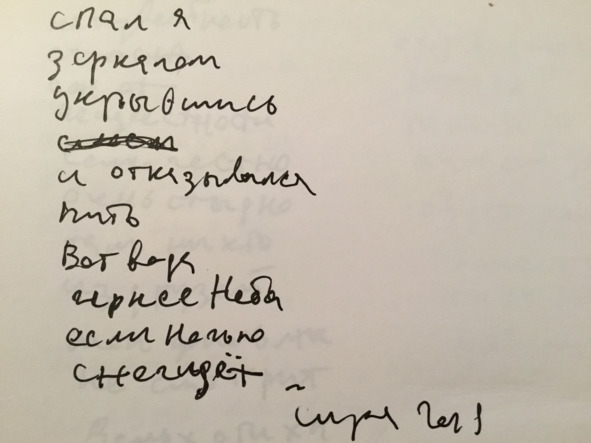 спал я
зеркалом
укрывшись
и отказывался
пить
Вот вода
чернее Неба
если Ночью
снег идёт